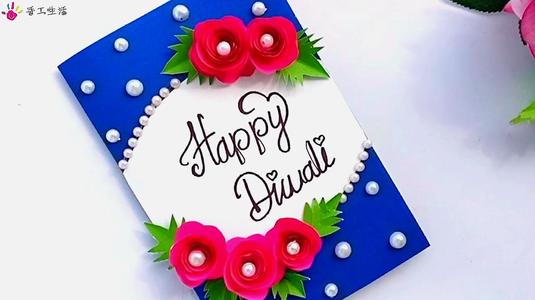 香工生活
Happy
Diwali